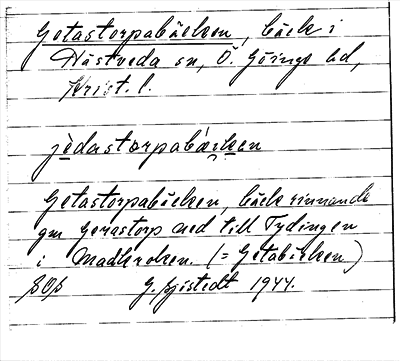 Getastorpabäcken, bäck i
Hästveda sn, Ö. Göinge hd,
Krist. l.
jèdastorpabǽcken
Getastorpabäcken, bäck rinnande
gm Getastorp ned till Tydingen
i Madkroken (= Getabäcken)
1944.